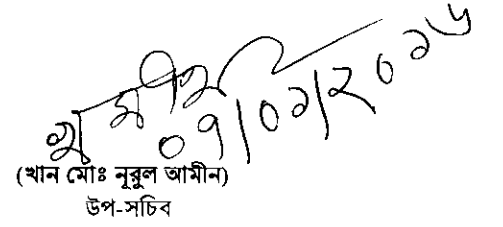 ০৭/০১/২০১৬
(খান মোঃ নূরুল আমীন)
উপ-সচিব